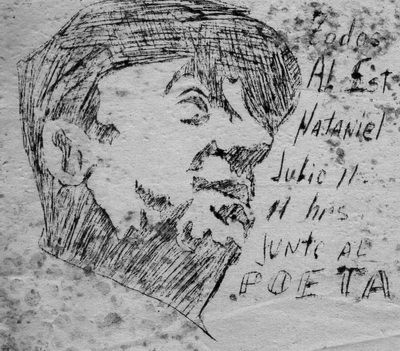 Todos
AL Est
NATANIEL
Julio 11.
11 hrs.
JUNTO AL
POETA